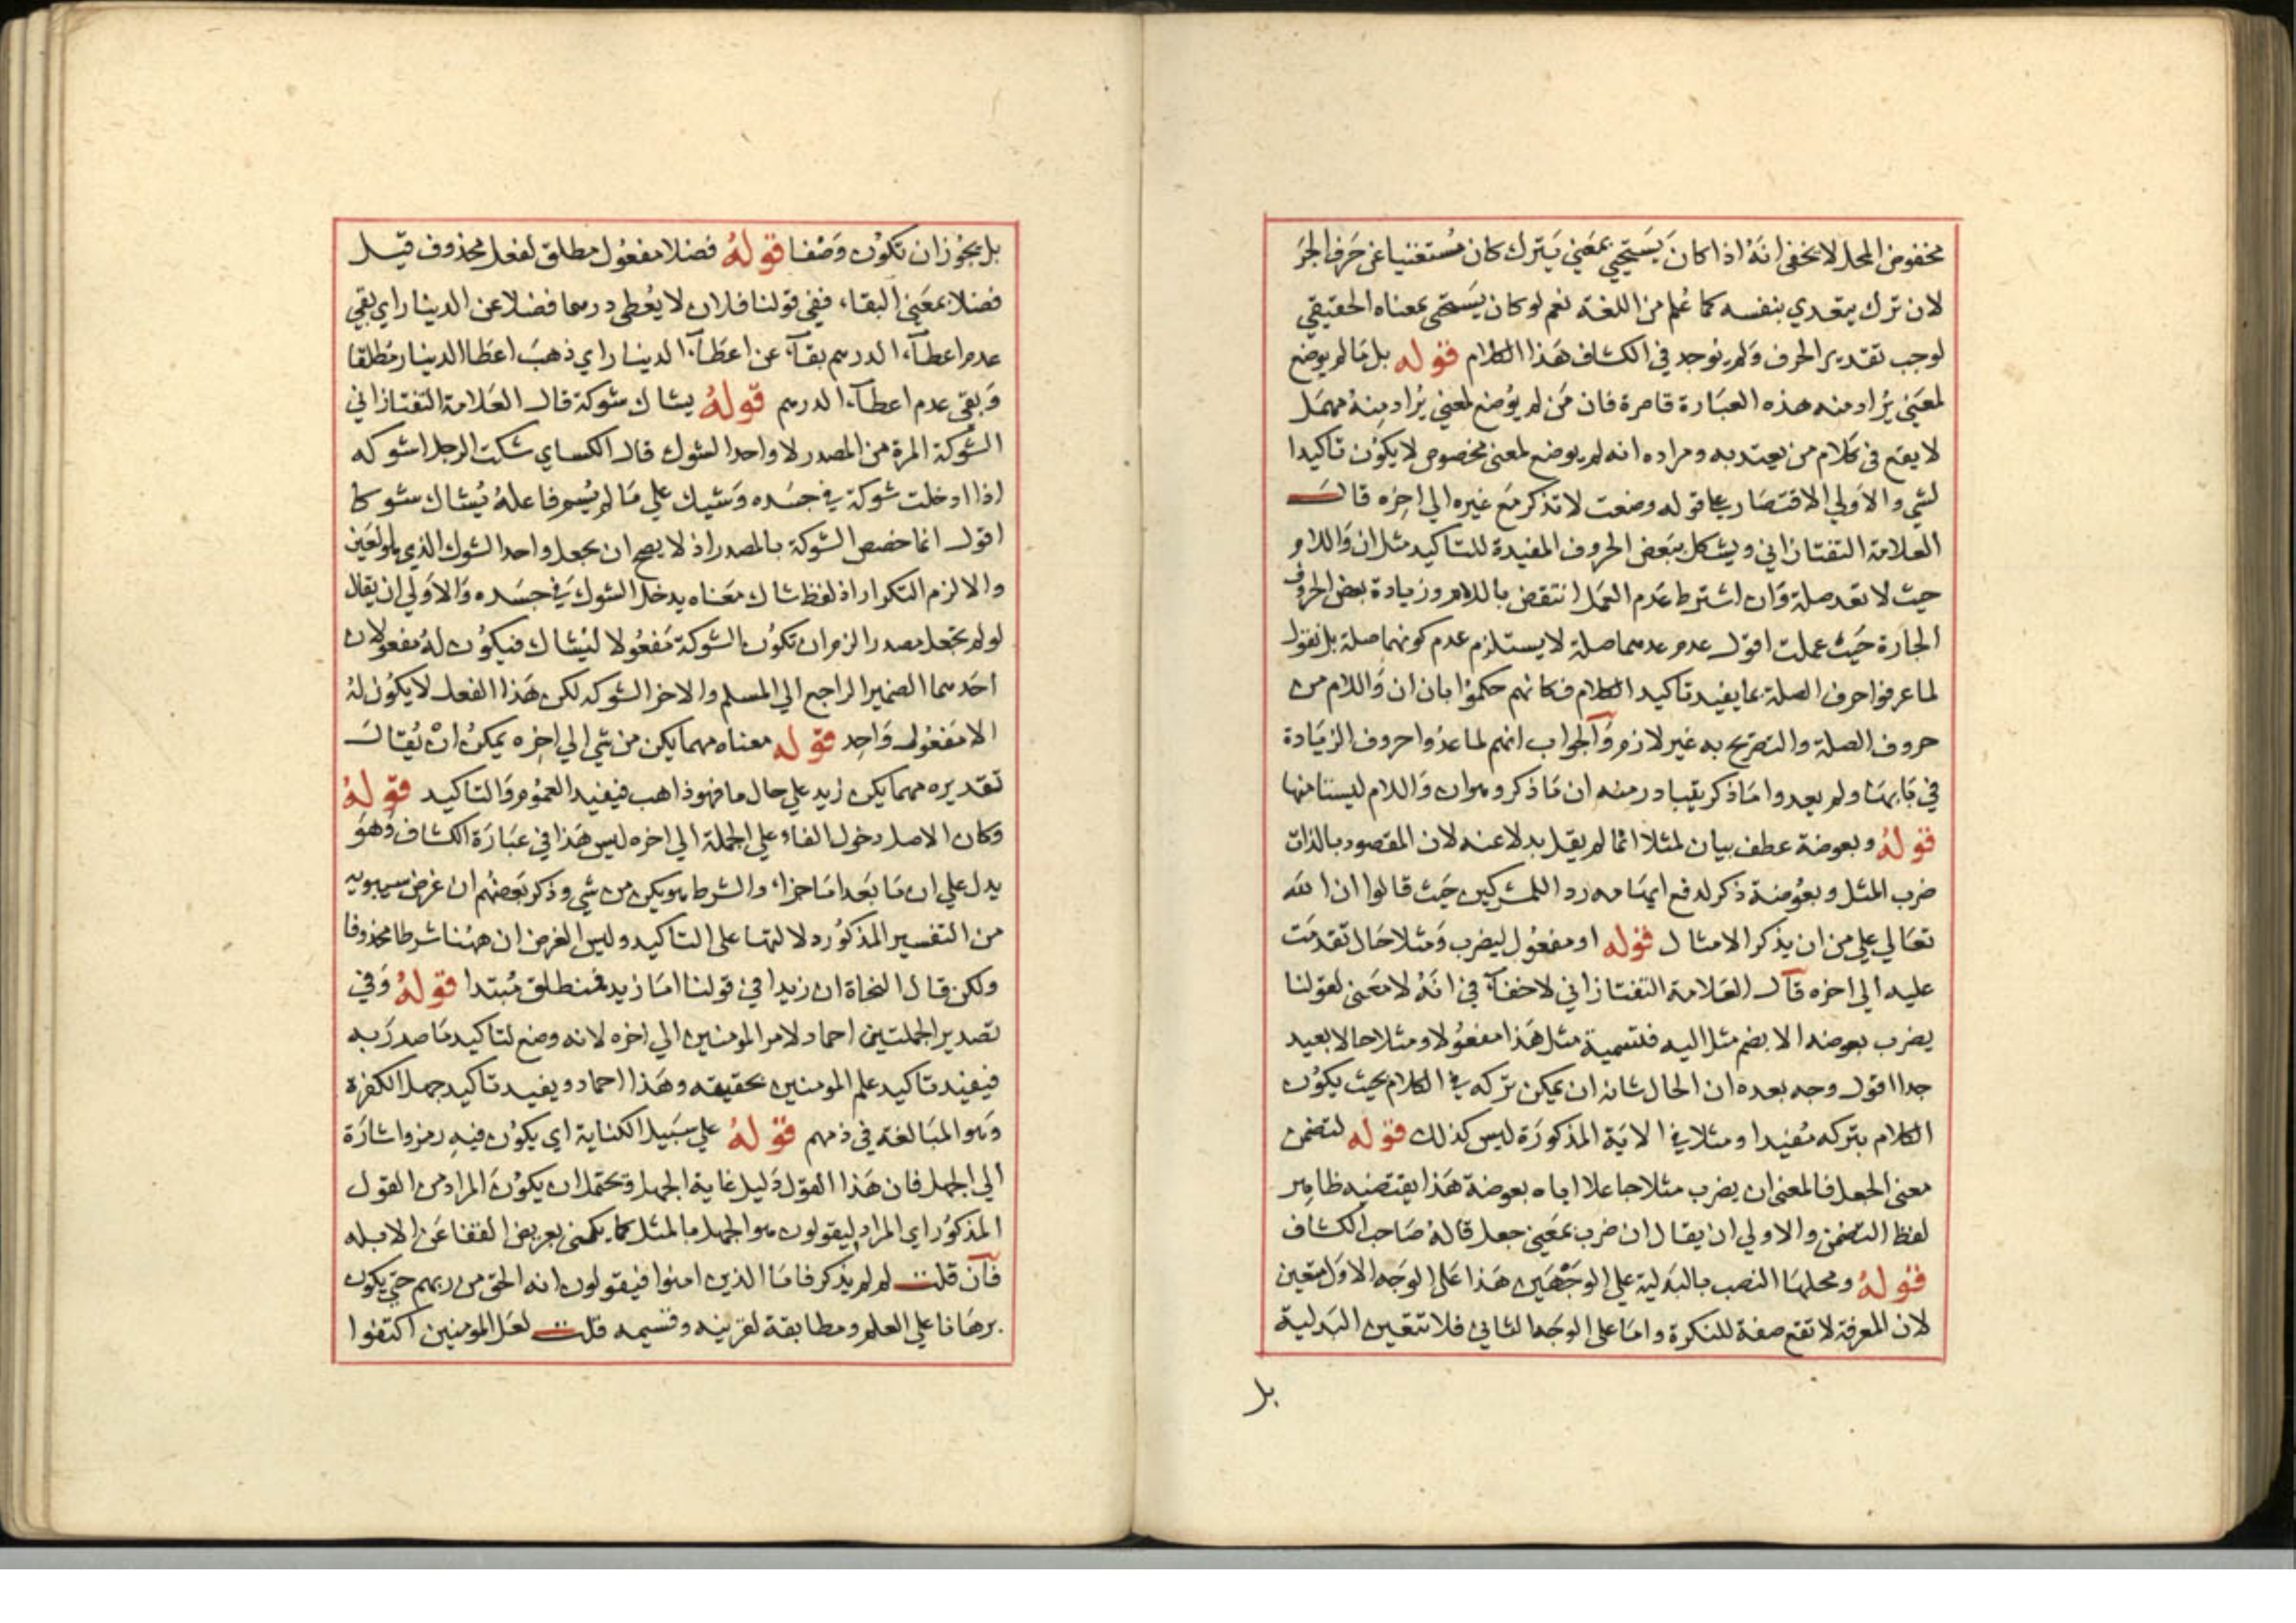 مخفوض المحل لا يخفى انه اذا كان يستحيي بمعني يترك كان مستغنيا عن حرف الجر
لان ترك يتعدي بنفسه كما علم من اللغة نعم لو كان يستحى بمعناه الحقيقي
لوجب تقدير الحرف ولم يوجد في الكشاف هذا الكلام قوله بل ما لم يوضع
لمعني يراد منه هذه العبارة قاصرة فان من لم يوضع لمعني يراد منه مهمل
لا يقع فى كلام من يعتد به ومراده انه لم يوضع لمعنى مخصوص لا يكون تاكيدا
لشي والاولي الاقتصار على قوله وضعت لا تذكر مع غيره الي اخره قال
العلامة التفتازاني ويشكل ببعض الحروف المفيدة للتاكيد مثل ان واللام
حيث لا تعد صلة وان اشترط عدم العمل انتقض باللام وزيادة بعض الحروف
الجارة حيث عملت اقول عدم عدهما صلة لا يستلزم عدم كونهما صلة بل نقول
لما عرفوا حرف الصلة بما يفيد تاكيد الكلام فكانهم حكموا بان ان واللام من
حروف الصلة والتصريح به غير لازم والجواب انهم لما عدوا حروف الزيادة
في بابها ولم يعدوا ما ذكر يتبادر منه ان ما ذكر وهو ان واللام ليستا منها
قوله وبعوضة عطف بيان لمثلا انما لم يقل بدلا عنه لان المقصود بالذات
ضرب المثل وبعوضة ذكر لدفع ايهامه رد اللمشركين حيث قالوا ان الله
تعالي علي من ان يذكر الامثال قوله او مفعول ليضرب ومثلا حال تقدمت
عليه الى اخره قال العلامة التفتازاني لا خفآ في انه لا معنى لقولنا
يضرب بعوضه الا بضم مثل اليه فتسمية مثل هذا مفعولا ومثلا حالا بعيد
جدا اقول وجه بعده ان الحال شانه ان يمكن تركه في الكلام بحيث يكون
الكلام بتركه مفيدا ومثلا في الاية المذكورة ليس كذلك قوله لتضمن
معنى الجعل فالمعنى ان يضرب مثلا جاعلا اياه بعوضة هذا يقتضيه ظاهر
لفظ التضمن والاولي ان يقال ان ضرب بمعني جعل قاله صاحب الكشاف
قوله ومحلها النصب بالبدلية علي الوجهين هذا على الوجه الاول متعين
لان المعرفة لا تقع صفة للنكرة واما على الوجه الثاني فلا تتعين البدلية
بل
بل يجوز ان تكون وصفا قوله فضلا مفعول مطلق لفعل محذوف قيل
فضلا بمعني البقاء ففي قولنا فلان لا يعطي درهما فضلا عن الدينار اي بقي
عدم اعطآء الدرهم بقآء عن اعطآء الدينار اي ذهب اعطا الدينار مطلقا
وبقي عدم اعطآء الدرهم قوله يشاك شوكة قال العلامة التفتازاني
الشوكة المرة من المصدر لا واحدا لشوك قال الكساي شكت الرجل اشوكه
اذا ادخلت شوكة في جسده وشيك علي ما لم يسم فاعله يشاك شوكا
اقول انما خصص الشوكة بالمصدر اذ لا يصح ان يجعل واحد الشوك الذي هو العين
والا لزم التكرار اذ لفظ شاك معناه يدخل الشوك في جسده والاولي ان يقال
لو لم تجعل مصدرا لزم ان تكون الشوكة مفعولا ليشاك فيكون له مفعولان
احدهما الضمير الراجع الي المسلم والاخر الشوكه لكن هذا الفعل لا يكون له
الا مفعول واحد قوله معناه مهما يكن من شي الي اخره يمكن ان يقال
تقديره مهما يكن زيد علي حال ما فهو ذاهب فيفيد العموم والتاكيد قوله
وكان الاصل دخول الفاء علي الجملة الي اخره ليس هذا في عبارة الكشاف وهو
يدل علي ان ما بعد اما جزاء والشرط هو يكن من شي وذكر بعضهم ان غرض سيبويه
من التفسير المذكور دلالتها على التاكيد وليس الغرض ان ههنا شرطا محذوفا
ولكن قال النحاة ان زيدا في قولنا اما زيد فمنطلق مبتدا قوله وفي
تصدير الجملتين احماد لامر المومنين الي اخره لانه وضع لتاكيد ما صدر به
فيفيد تاكيد علم المومنين بحقيقه وهذا احماد ويفيد تاكيد جهل الكفرة
وهو المبالغة في ذمهم قوله علي سبيل الكناية اي يكون فيه رمز واشارة
الي الجهل فان هذا القول دليل غاية الجهل ويحتمل ان يكون المراد من القول
المذكور اي المراد ليقولون هو الجهل بالمثل كما يكنى بعريض القفا عن الابله
فآن قلت لم لم يذكر فاما الذين امنوا فيقولون انه الحق من ربهم حتي يكون
برهانا علي العلم ومطابقة لقرينه وقسيمه قلت لعل المومنين اكتفوا